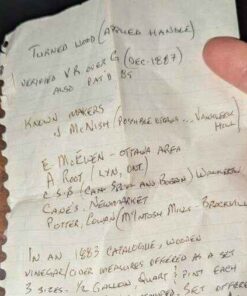 TURNED WOOD (APPLIED HANDLE)
VERIFIED V.R. OVER G (DEC. 1887)
ALSO PAT'D 85
KNOWN MAKERS
J McNISH (POSSIBLE ... VANKLEEK HILL
E. McEWEN - OTTAWA AREA
A ROOT (LYN, ONT)
C.S.B (CANT AND BOSOM) 
CANE'S, NEWMARKET
POTTER, COWAN (McINTOSH MILLS - BROCKVILLE
IN AN 1883 CATALOGUE, WOODEN
VINEGAR/CIDER MEASURES OFFERED AS A SET
3 SIZES - 1/2 GALLON QUART & PINT EACH
SET OFFERED